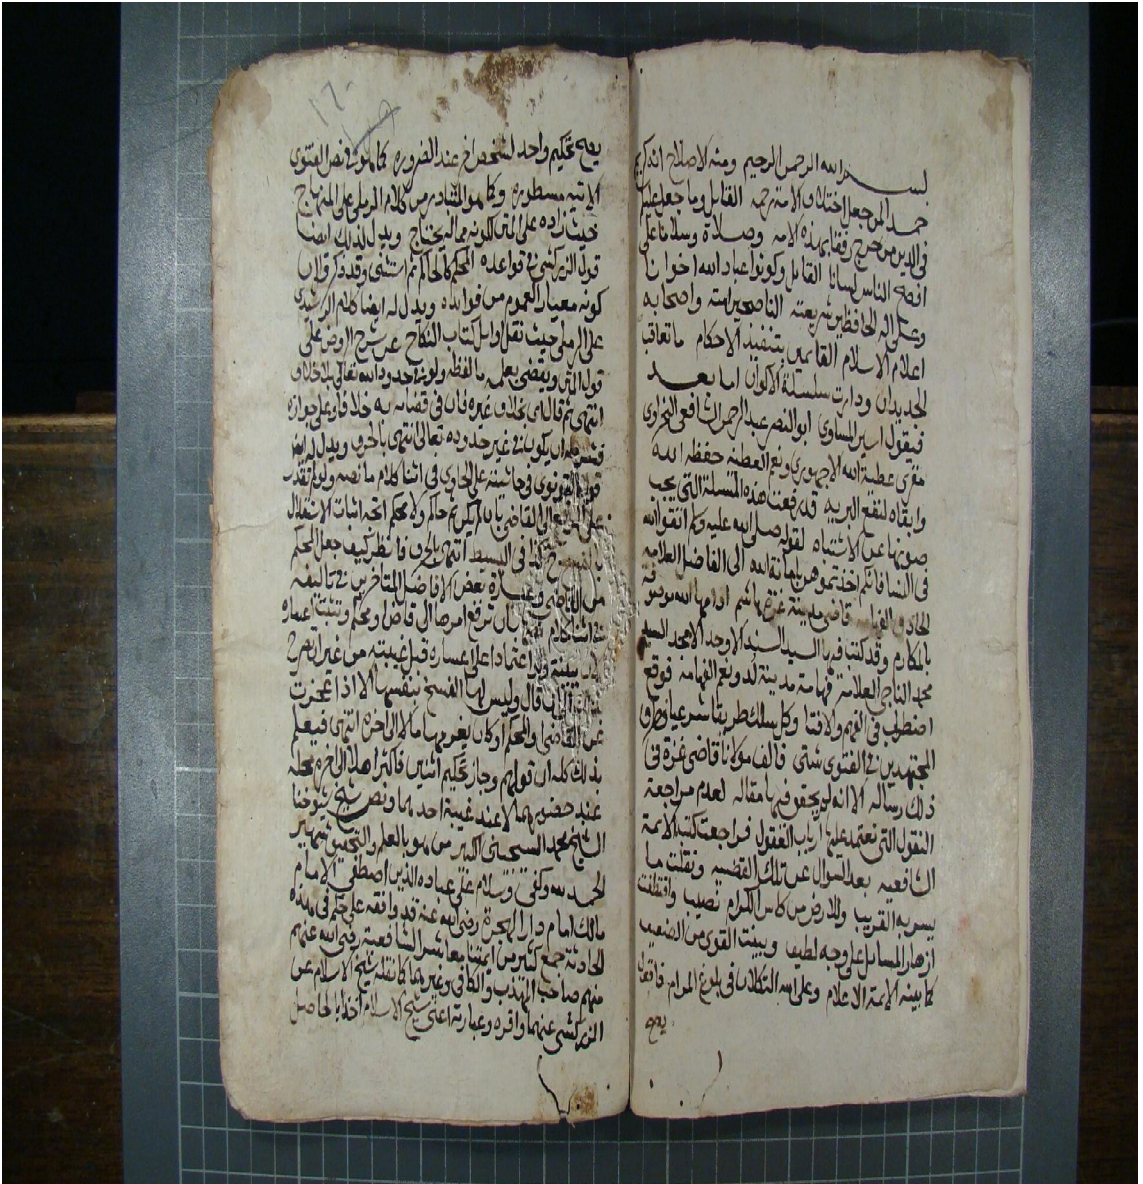 بسم الله الرحمن الرحيم ومنه الاصلاح انه كريم
حمدا لمن جعل اختلاف الامة رحمه القايل وما جعل عليكم
في الدين من حرج رفقا بهذه الامه وصلاة وسلاما على
افصح الناس لسانا القايل وكونوا عباد الله اخوانا
وعلى اله الحافظين شريعته الناصحين امته واصحابه
اعلام الاسلام القايمين بتنفيذ الاحكام ما تعاقب
الجديدان ودارت سلسلة الاكوان اما بعد
فيقول اسير المساوي ابو النصر عبد الرحمن الشافعي النحراوي
مقري عطية الله الاجهوري رفيع العطيه حفظه الله
وابقاه لنفع البريه قد رفعت هذه المسئلة التي يجب
صونها عن الاشتباه لقوله صلى الله عليه وسلم اتقوا الله
في النسا فانكم اخذتموهن بامانة الله الى الفاضل العلامه
الحاذق الفهامه قاضي مدينة غزة هاشم ادامها الله موفو
بالمكارم وقد كتب فيها السيد السند الاوحد الامجد السيد
محمد التاجي العلامة فهامة مدينة لد ونعم الفهامه فوقع
اضطراب في الفهم والافتا وكل سلك طريقا شرعيا وطرق
المجتهدين في الفتوى شتى فالف مولانا قاضي غزة في
ذلك رساله الا انه لم يحقق فيها مقاله لعدم مراجعة
النقول التي تعتمد عليها ارباب العقول فراجعت كتب الايمة
الشافعيه بعد السؤال عن تلك القضيه ونقلت ما
يسر به القريب وللارض من كاس الكرام نصيب واقتطفت
ازهار المسايل على وجه لطيف وبينت القوي من الضعيف
كما بينه الايمة الاعلام وعلى الله التكلان في بلوغ المرام فاقول
يصح
١٦٠
يصح تحكيم واحد لشخص اخر عند الضروره كما هو في نص الفتوى
الاتيه مسطوره وكما هو المتبادر من كلام الرملي على المنهاج
حيث زاده على المتن لكونه مما اليه يحتاج ويدل لذلك ايضا
قول الزركشي في قواعده المحكم كالحاكم ثم استثنى وقد ذكر ان
كونه معيار العموم من فوايده ويدل له ايضا كلام الرشيدي
على الرملي حيث نقل اوايل كتاب النكاح عن شرح الروض على
قول المتن ويقضي بعلمه ما لفظه ولو في حدود الله تعالى بلا خلاف
انتهى ثم قال اي بخلاف غيره فان في قضايه به خلافا وعلى جوازه
فشرطه ان يكون في غير حدوده تعالى انتهى بالحرف ويدل له ايضا
قول القونوي في حاشيته على الحاوي في اثنا كلام ما نصه ولو تعذر
على المرفع الى القاضي بان لم يكن ثم حاكم ولا محكم اتجه اثبات الاستقلال
بالفسخ كذا في البسيط انتهى بالحرف فانظر كيف جعل المحكم
من القاضي وعبارة بعض الافاضل المتاخرين في تاليفه
في اثنا كلام بان ترفع امرها الى قاض او محكم وتثبت اعساره
ببينة ولو اعتمادا على اعساره قبل غيبته من غير
قال وليس لها الفسخ بنفسها الا اذا عجزت
عن القاضي والمحكم او كان يغرمها مالا الى اخره انتهى فيعلم
بذلك كله ان قولهم وجاز تحكيم اثنين فاكثر اهلا الى اخره محله
عند حضورهما لا عند غيبة احدهما ونص شيخ شيوخنا
الشيخ محمد السحيمي الكبير من هو بالعلم والتحقيق شهير
الحمد لله وكفى وسلام على عباده الذين اصطفى الامام
مالك امام دار الهجرة رضي الله عنه قد وافقه على حكم في هذه
الحادثة جمع كثير من ايمتنا معاشر الشافعية رضي الله عنهم
منهم صاحب المهذب والكافي وغيرهما كما نقله شيخ الاسلام عن
الزركشي عنهما واقره وعبارته اعني شيخ الاسلام اخذ الحاصل